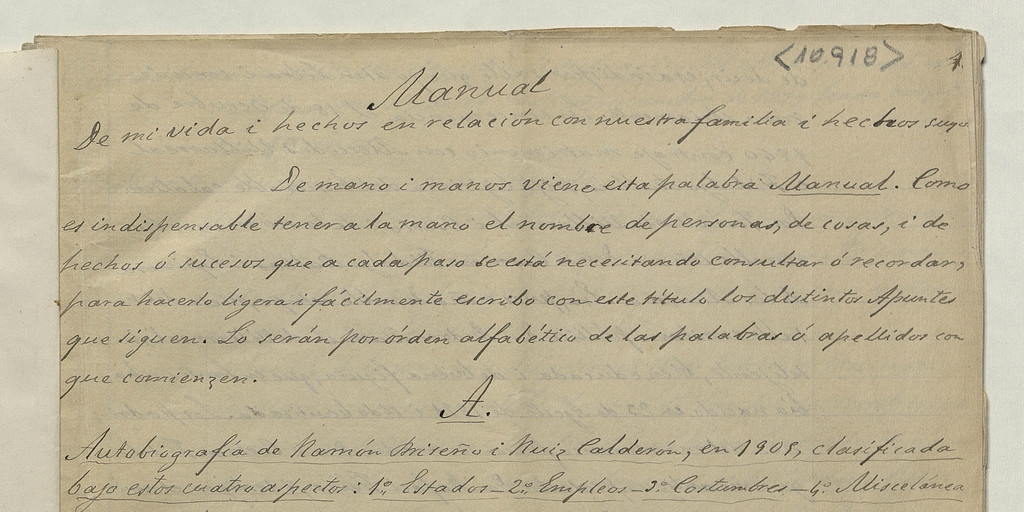 <10.918> 1.
Manual
De mi vida i hechos en relación con nuestra familia i hechos suyos
De mano i manos viene esta palabra Manual. Como
es indispensable tener a la mano el nombre de personas, de cosas, i de
hechos ó sucesos que a cada paso se está necesitando consultar ó recordar,
para hacerlo ligera i fácilmente escribo con este título los distintos Apuntes
que siguen. Lo serán por órden alfabético de las palabras ó apellidos con
que comienzen.
A.
Autobiografía de Ramón Briseño i Ruiz Calderón, en 1905, clasificada
bajo estos cuatro aspectos: 1º. Estados_2º. Empleos_3º. Costumbres_4º. Miscelánea